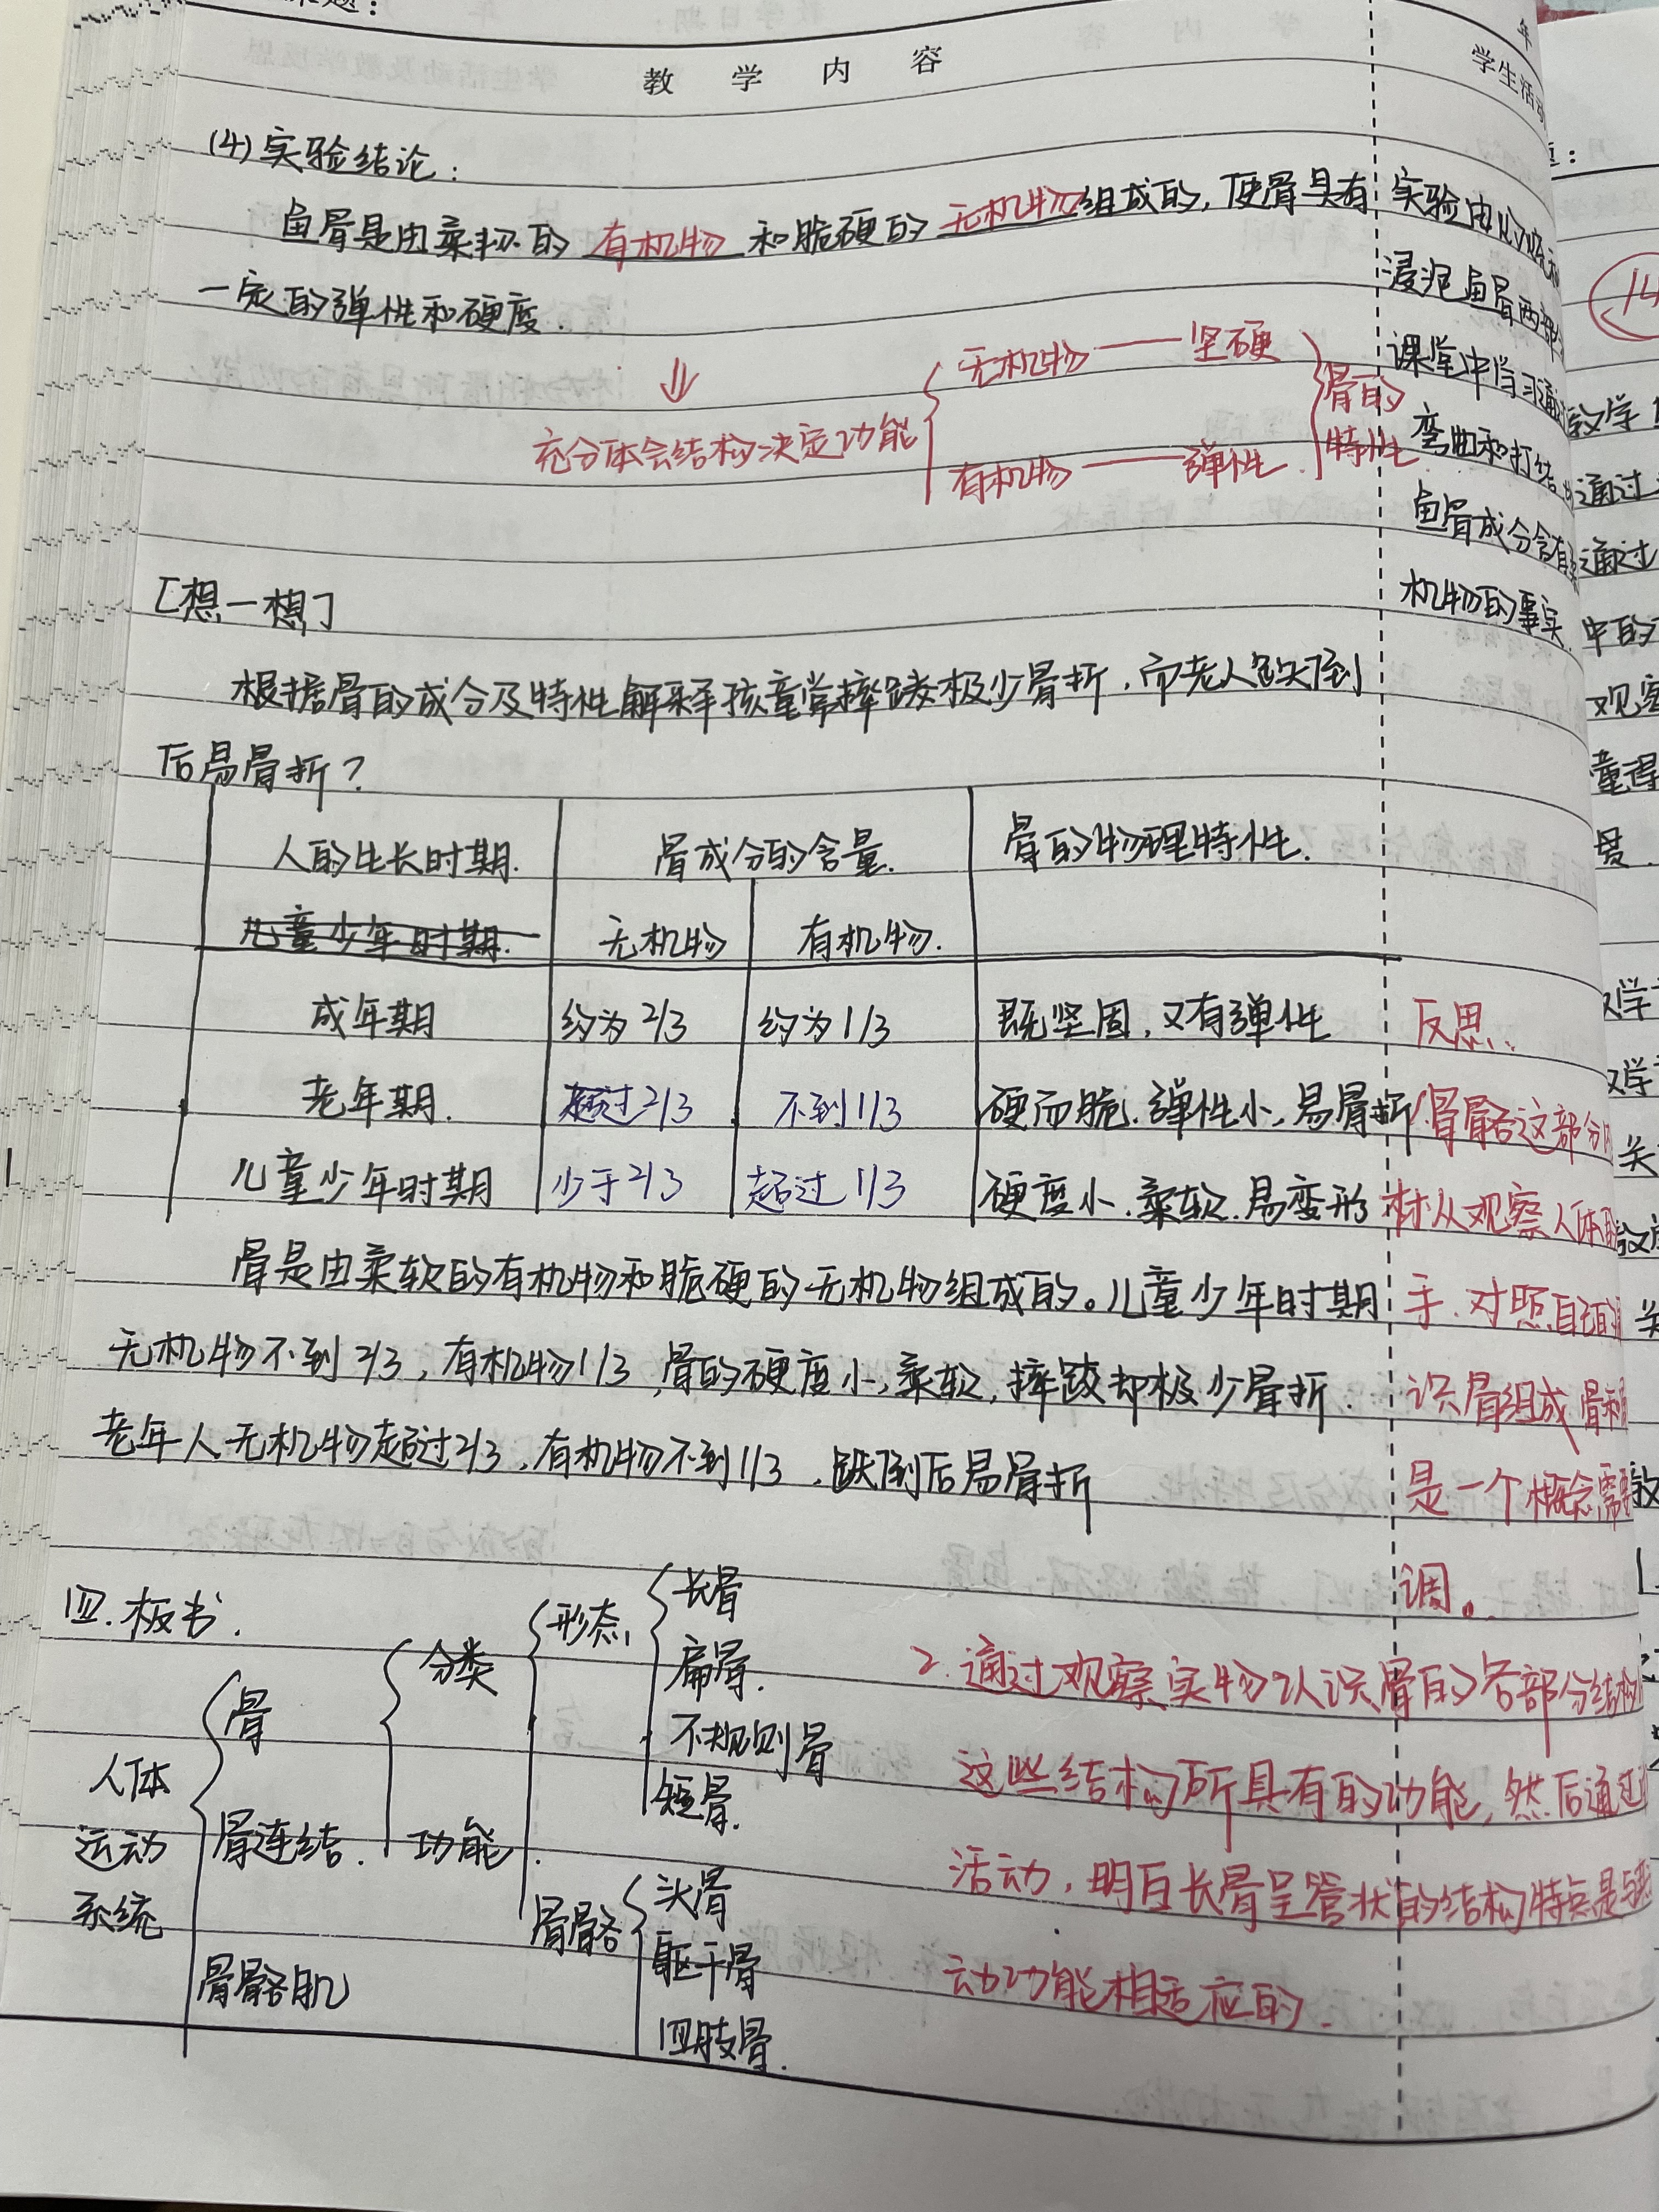 教 学 内 容
学生活
(4) 实验结论:
鱼骨是由柔韧的 有机物 和脆硬的 无机物组成的,使骨具有
一定的弹性和硬度.
⇓
充分体会结构决定功能
无机物——坚硬
有机物——弹性.
骨的
特性
[想一想]
根据骨的成分及特性解释孩童摔跤极少骨折,而老人跌倒
后易骨折?
人的生长时期.
骨成分的含量.
骨的物理特性.
儿童少年时期.
无机物
有机物.
成年期
约为2/3
约为1/3
既坚固,又有弹性
老年期.
超过2/3
不到1/3
硬而脆.弹性小、易骨折
儿童少年时期
少于2/3
超过1/3
硬度小.柔软.易变形
骨是由柔软的有机物和脆硬的无机物组成的。儿童少年时期
无机物不到2/3,有机物1/3,骨的硬度小,柔软,摔跤却极少骨折.
老年人无机物超过2/3,有机物不到1/3.跌倒后易骨折
四.板书.
人体
运动
系统
骨
骨连结.
骨骼肌
分类
功能.
形态,
骨骼
长骨
扁骨.
不规则骨
短骨.
头骨
躯干骨
四肢骨.
2.通过观察实物认识骨的各部分结构
这些结构所具有的功能,然后通过
活动,明白长骨呈管状的结构特点是
动功能相适应的.
实验中从
浸泡鱼骨
课堂中当
弯曲和打结
鱼骨成分
机物的事实
反思:
骨骼这部分
材从观察人体
手.对照自
识骨组成
是一个概念
调。